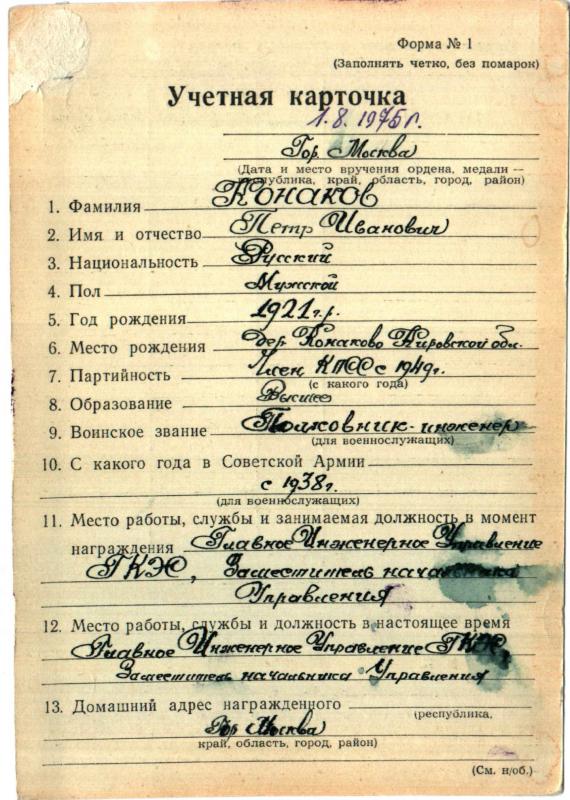 Форма № 1
(Заполнять четко, без помарок)
Учетная карточка
1.8.1975г.
Гор. Москва
(Дата и место вручения ордена, медали —
республика, край, область, город, район)
1. Фамилия Конаков
2. Имя и отчество Петр Иванович
3. Национальность Русский
4. Пол Мужской
5. Год рождения 1921 г.р.
6. Место рождения дер. Конаково Кировской обл.
7. Партийность Член КПСС с 1949г.
(с какого года)
8. Образование Высшее
9. Воинское звание Полковник-инженер
(для военнослужащих)
10. С какого года в Советской Армии
с 1938г.
(для военнослужащих)
11. Место работы, службы и занимаемая должность в момент
награждения Главное Инженерное Управление
ГКЭС, Заместитель начальника
Управления
12. Место работы, службы и должность в настоящее время
Главное Инженерное Управление ГКЭС,
Заместитель начальника Управления
13. Домашний адрес награжденного
(республика,
Гор Москва
край, область, город, район)
(См. н/об.)